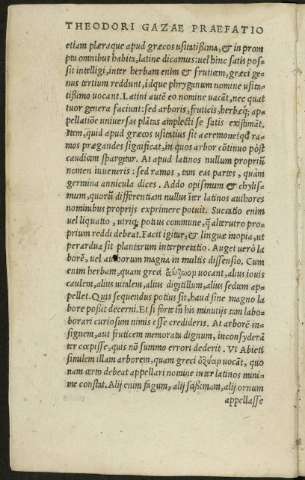 THEODORI GAZAE PRAEFATIO
etiam plæraque apud græcos usitatißima, & in prom
ptu omnibus habita, latine dicamus: uel hinc satis pos
sit intelligi, inter herbam enim & fruticem, græci ge-
nus tertium reddunt, idque phryginum nomine usita-
tißimo uocant. Latini autē eo nomine uacāt, nec quat
tuor genera faciunt: sed arboris, fruticis, herbæq; ap-
pellatiōe uniuersas plātas amplecti se satis existimāt.
Item, quid apud græcos usitatius sit acremonisq́
ramos prægandes significat, in quos arbor cōtinuo pōst
caudicem spargetur. At apud latinos nullum propriū
nomen inueneris: sed ramos, tum eas partes, quàm
germina annicula dices. Addo opismum & chylis-
mum, quorū differentiam nullus iter latinos authores
nominibus proprijs exprimere potuit. Sucatio enim
uel liquatio, utriq; potius commune, q̃ alterutro pro-
prium reddi debeat. Facit igitur, & linguæ inopia, ut
perardua sit plantarum interpretatio. Auget uerò la
borē, uel authorum magna in multis dissensio. Cum
enim herbam, quam græci ἀείζωον uocant, alius iouis
caulem, alius uitalem, alius digitillum, alius sedum ap-
pellet. Quis sequendus potius sit, haud sine magno la
bore poßit decerni. Et si fortè in his minutijs non labo-
borari curiosum nimis esse credideris. At arborē in-
signem, aut fruticem memoratu dignum, inconsyderā
ter cœpisse, quis nō summo errori dederit. Vt Abieti
similem illam arborem, quam græci ὀξύαν uocāt, quo
nam uero debeat appellari nomine inter latinos mini-
me constat. Alij enim fagum, alij sapinam, alij ornum
appellasse